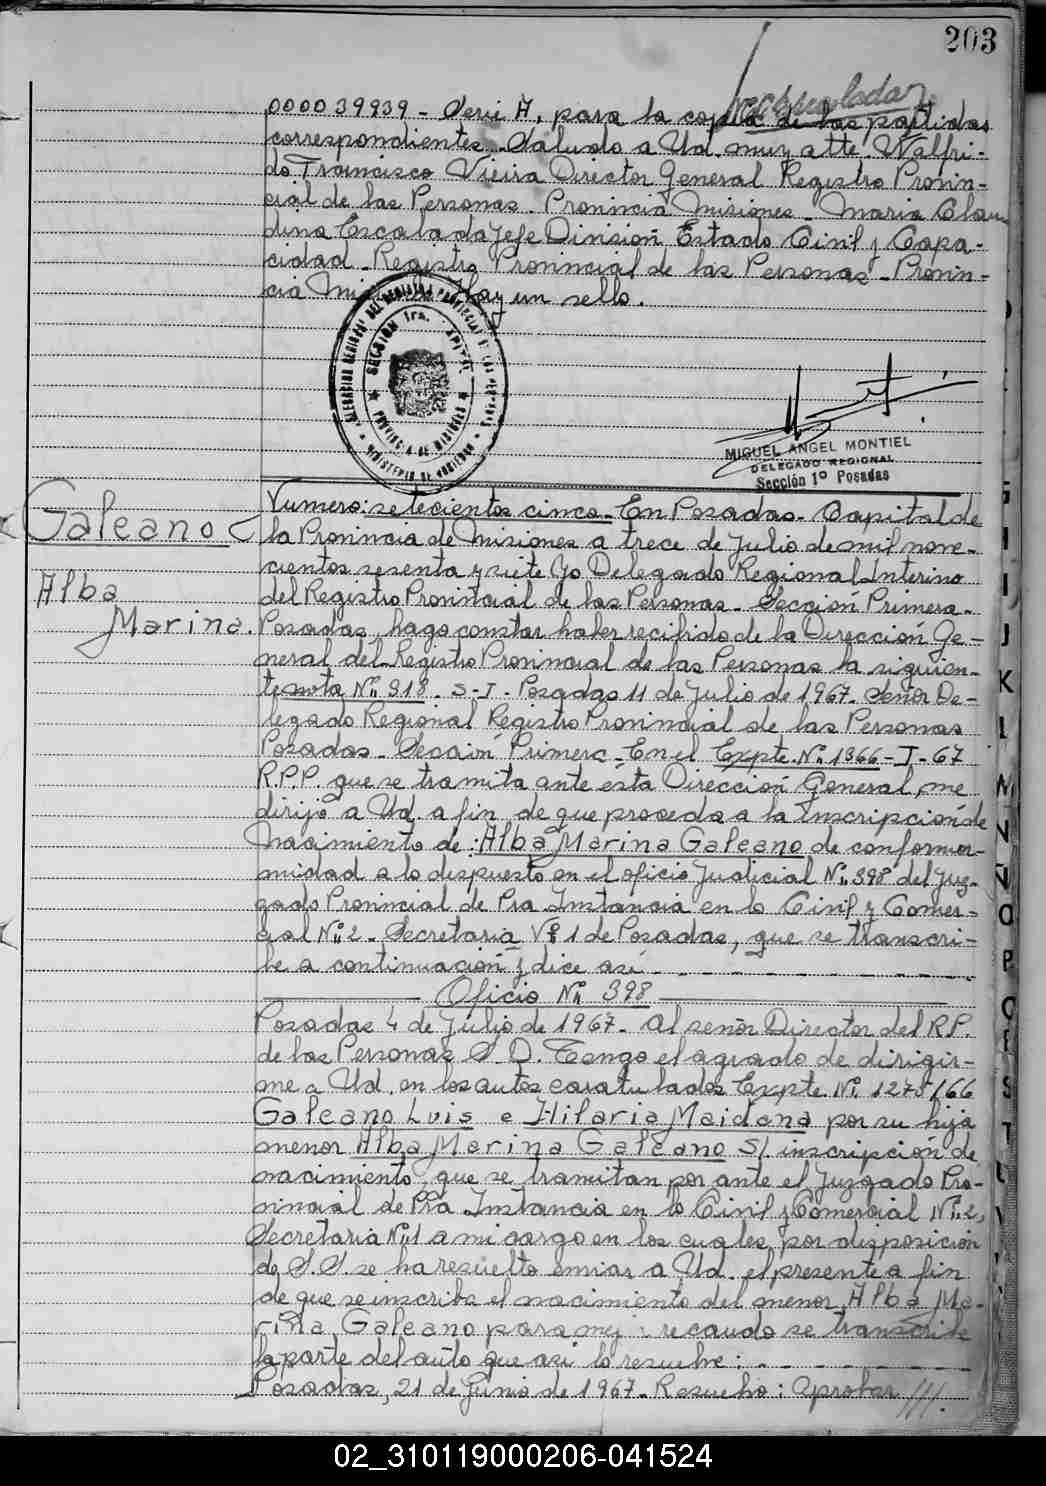 203
0000 39939 - Serie A, para la copia de las partidas
correspondientes. Saludo a Ud. muy atte. Walfri-
do Francisco Vieira Director General Registro Provin-
cial de las Personas. Provincia Misiones - Maria Clau
dina Escalada Jefe Division Estado Civil y Capa-
cidad - Registro Provincial de las Personas - Provin-
cia Hay un sello.
SECCION 1ra.
PROVINCIA DE MISIONES
MIGUEL ANGEL MONTIEL
DELEGADO REGIONAL
Sección 1º Posadas
Galeano
Alba
Marina.
Numero: setecientos cinco - En Posadas - Capital de
la Provincia de Misiones a trece de Julio de mil nove-
cientos sesenta y siete Yo Delegado Regional Interino
del Registro Provincial de las Personas - Sección Primera -
Posadas, hago constar haber recibido de la Dirección Ge-
neral del Registro Provincial de las Personas la siguien-
te nota Nº 918. S-I - Posadas 11 de Julio de 1967. Señor De-
legado Regional Registro Provincial de las Personas
Posadas - Sección Primera - En el Expte. Nº 1366 - I - 67
R.P.P. que se tramita ante ésta Dirección General, me
dirijo a Ud. a fin de que proceda a la Inscripción de
Nacimiento de: Alba Marina Galeano de conformi-
midad a lo dispuesto en el oficio Judicial Nº 398 del Juz-
gado Provincial de Pra Instancia en lo Civil y Comer-
cial Nº 2 - Secretaria Nº 1 de Posadas, que se transcri-
be a continuación y dice asi
Oficio Nº 398
Posadas 4 de Julio de 1967 - Al señor Director del R.P.
de las Personas S. D. Tengo el agrado de dirigir-
me a Ud. en los autos caratulados Expte. Nº 1275/66
Galeano Luis e Hilaria Maidana por su hija
menor Alba Marina Galeano S/. inscripción de
nacimiento, que se tramitan por ante el Juzgado Pro-
vincial de Pra Instancia en lo Civil y Comercial Nº 2,
Secretaria Nº 1 a mi cargo en los cuales, por disposición
de S.S. se ha resuelto enviar a Ud. el presente a fin
de que se inscriba el nacimiento del menor Alba Ma-
rina Galeano para recaudo se transcribe
la parte del auto que asi lo resuelve:
Posadas, 21 de Junio de 1967 - Resuelvo: Aprobar ///.
K
L
M
N
Ñ
O
P
S
T
02_310119000206-041524